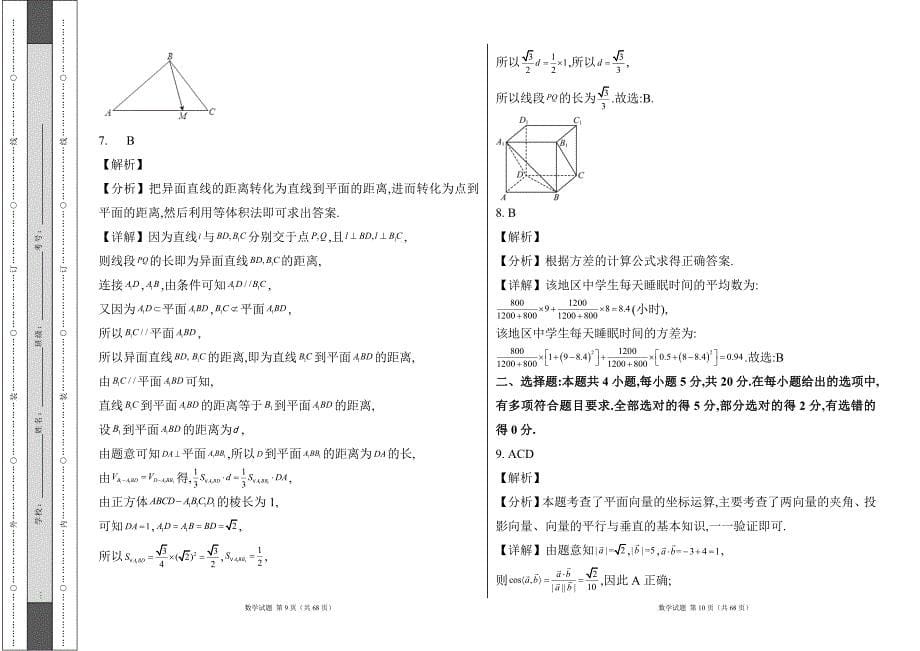 线
订
装
外
考号：
班级：
姓名：
学校：
线
订
装
内
B
A M C
7. B
【解析】
【分析】把异面直线的距离转化为直线到平面的距离,进而转化为点到
平面的距离,然后利用等体积法即可求出答案.
【详解】因为直线l与BD,B₁C分别交于点P,Q,且l⊥BD,l⊥B₁C,
则线段PQ的长即为异面直线BD,B₁C的距离,
连接A₁D,A₁B,由条件可知A₁D//B₁C,
又因为A₁D⊂平面A₁BD,B₁C⊄平面A₁BD,
所以B₁C//平面A₁BD,
所以异面直线BD,B₁C的距离,即为直线B₁C到平面A₁BD的距离,
由B₁C//平面A₁BD可知,
直线B₁C到平面A₁BD的距离等于B₁到平面A₁BD的距离,
设B₁到平面A₁BD的距离为d,
由题意可知DA⊥平面A₁BB₁,所以D到平面A₁BB₁的距离为DA的长,
由V_{B₁-A₁BD}=V_{D-A₁BB₁}得,1/3 S_{▽A₁BD}·d=1/3 S_{▽A₁BB₁}·DA,
由正方体ABCD-A₁B₁C₁D₁的棱长为1,
可知DA=1,A₁D=A₁B=BD=√2,
所以S_{▽A₁BD}=√3/4×(√2)²=√3/2,S_{▽A₁BB₁}=1/2,
数学试题 第9页（共68页）
所以√3/2 d=1/2×1,所以d=√3/3,
所以线段PQ的长为√3/3.故选:B.
D₁ C₁
A₁ B₁
D C
A B
8. B
【解析】
【分析】根据方差的计算公式求得正确答案.
【详解】该地区中学生每天睡眠时间的平均数为:
800/(1200+800)×9+1200/(1200+800)×8=8.4(小时),
该地区中学生每天睡眠时间的方差为:
800/(1200+800)×[1+(9-8.4)²]+1200/(1200+800)×[0.5+(8-8.4)²]=0.94.故选:B
二、选择题:本题共4小题,每小题5分,共20分.在每小题给出的选项中,
有多项符合题目要求.全部选对的得5分,部分选对的得2分,有选错的
得0分.
9. ACD
【解析】
【分析】本题考查了平面向量的坐标运算,主要考查了两向量的夹角、投
影向量、向量的平行与垂直的基本知识,一一验证即可.
【详解】由题意知|a⃗|=√2,|b⃗|=5,a⃗·b⃗=-3+4=1,
则cos⟨a⃗,b⃗⟩=a⃗·b⃗/|a⃗||b⃗|=√2/10,因此A正确;
数学试题 第10页（共68页）